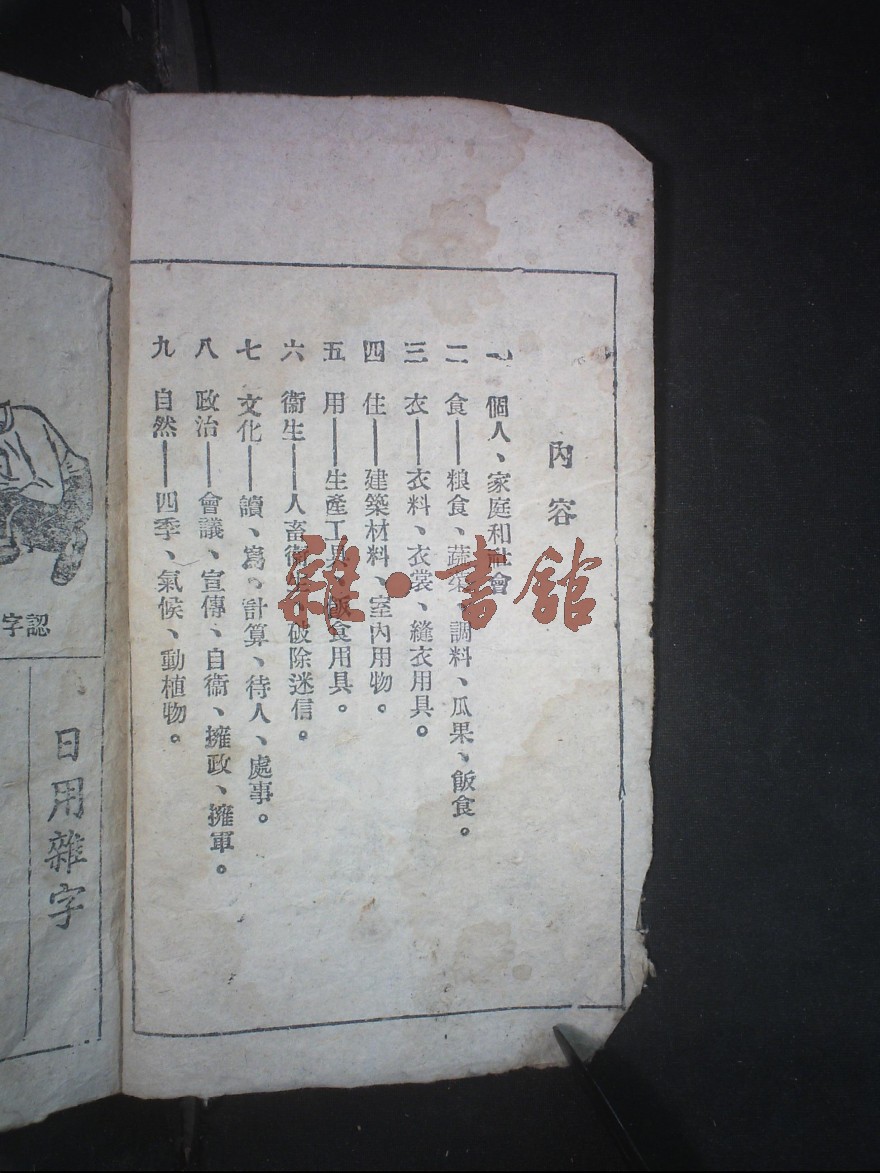 內容
一 個人、家庭和社會
二 食——粮食、蔬菜、調料、瓜果、飯食。
三 衣——衣料、衣裳、縫衣用具。
四 住——建築材料、室內用物。
五 用——生產工具、飯食用具。
六 衞生——人畜衞生、破除迷信。
七 文化——讀、寫、計算、待人、處事。
八 政治——會議、宣傳、自衞、擁政、擁軍。
九 自然——四季、氣候、動植物。
雜·書館
認字
日用雜字